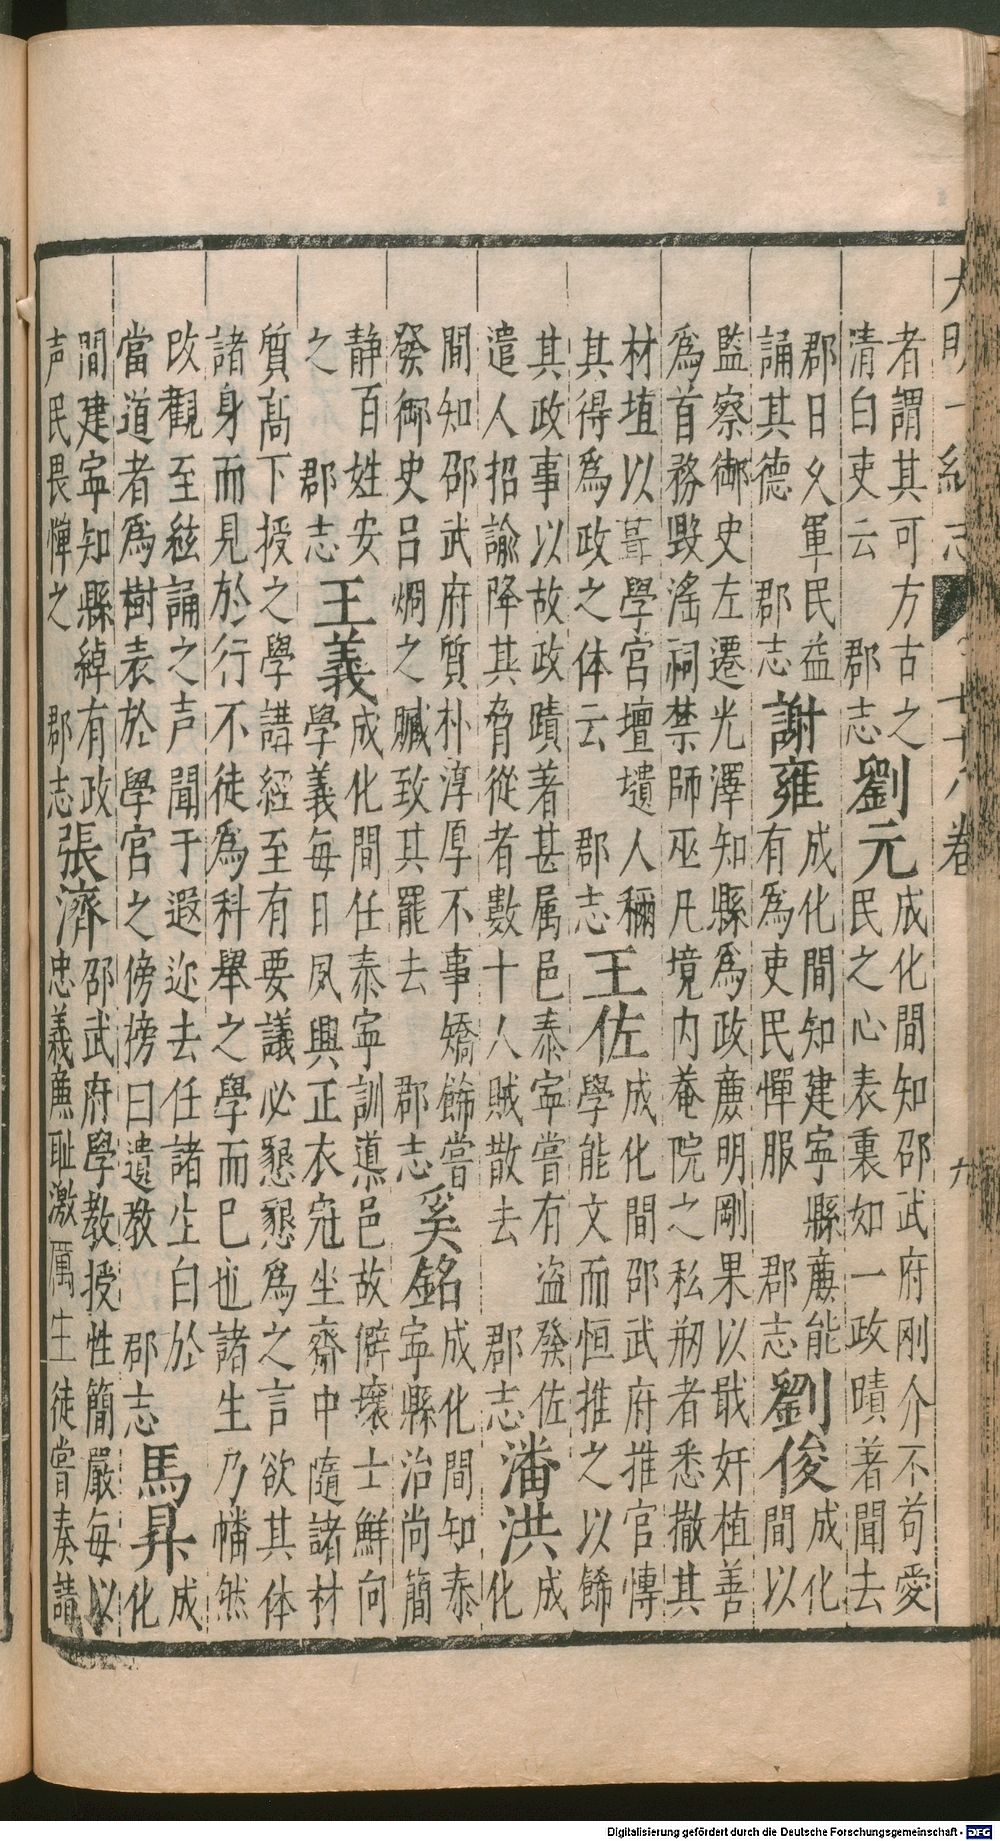 大明一統志 七十八卷 九
者謂其可方古之
清白吏云 郡志
劉元
成化間知邵武府刚介不苟愛
民之心表裏如一政蹟著聞去
郡日乆軍民益
誦其德 郡志
謝雍
成化間知建寧縣亷能
有為吏民憚服 郡志
劉俊
成化
間以
監察御史左遷光澤知縣為政亷明剛果以戢奸植善
為首務毁滛祠禁師巫凡境内菴院之私剏者悉撤其
材埴以葺學宫壇壝人稱
其得為政之体云 郡志
王佐
成化間邵武府推官愽
學能文而恒推之以餙
其政事以故政蹟著甚属邑泰寧嘗有盗發佐
遣人招諭降其脅從者數十人賊散去 郡志
潘洪
成
化
間知邵武府質朴淳厚不事矯餙嘗
發御史吕烱之贓致其罷去 郡志
奚銘
成化間知泰
寧縣治尚簡
静百姓安
之 郡志
王義
成化間任泰寧訓導邑故僻壤士鮮向
學義每日夙興正衣冠坐齋中隨諸材
質髙下授之學講經至有要議必懇懇為之言欲其体
諸身而見於行不徒為科舉之學而已也諸生乃幡然
改觀至絃誦之声聞于遐迩去任諸生白於
當道者為樹表於學官之傍榜曰遺教 郡志
馬昇
成
化
間建寧知縣綽有政
声民畏憚之 郡志
張濟
邵武府學教授性簡嚴每以
忠義亷耻激厲生徒嘗奏請
Digitalisierung gefördert durch die Deutsche Forschungsgemeinschaft - DFG